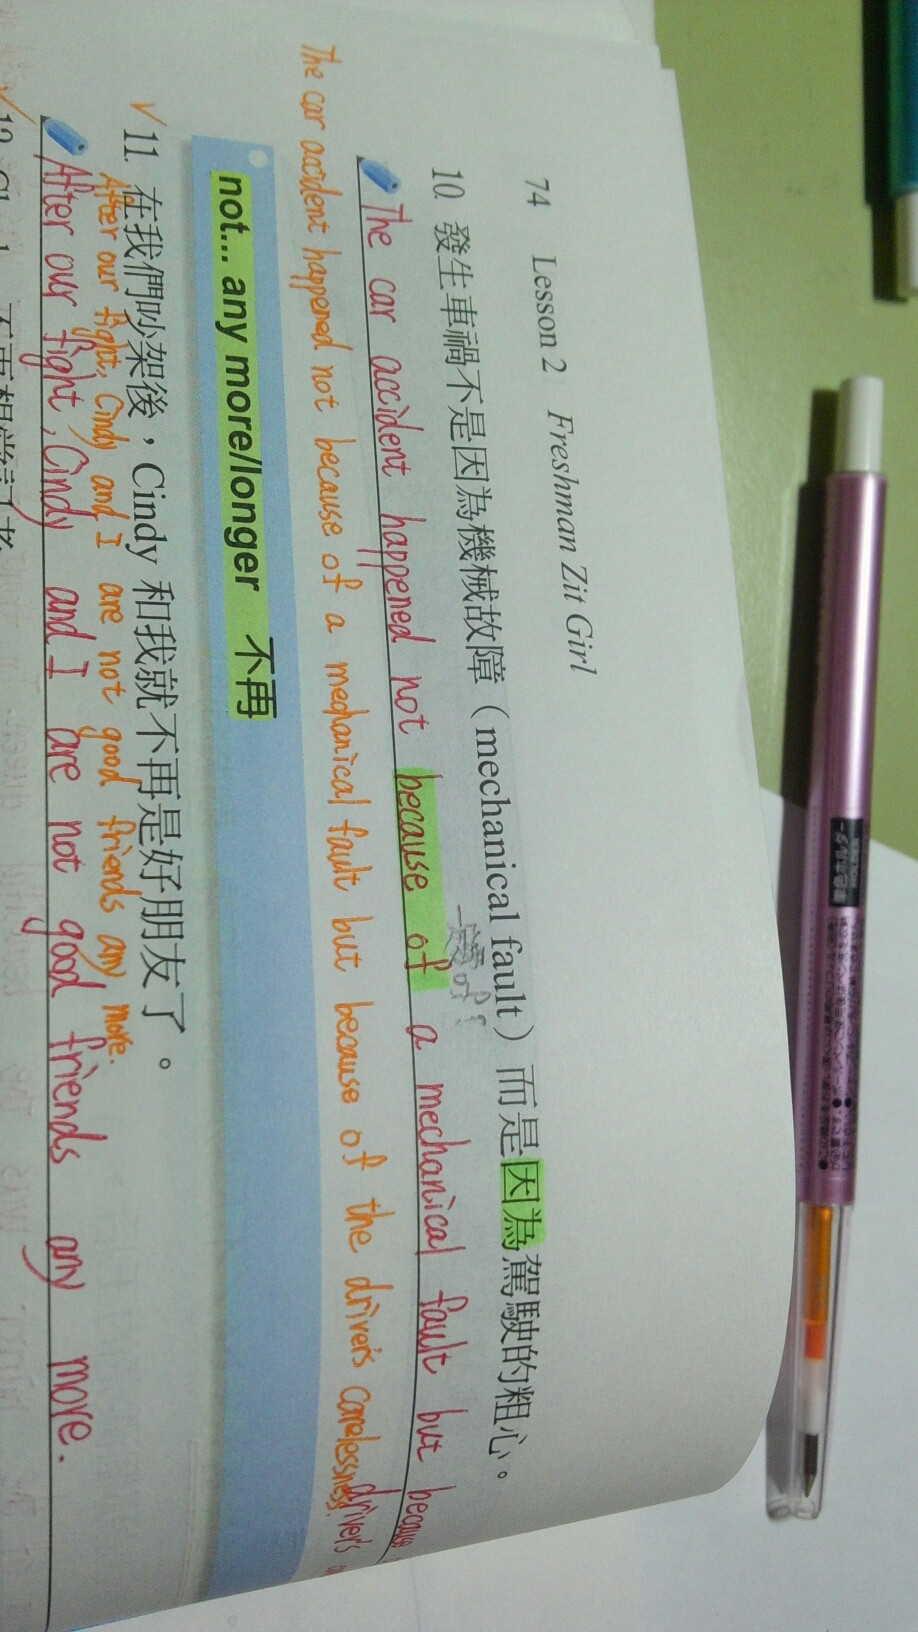 74 Lesson 2 Freshman Zit Girl
10. 發生車禍不是因為機械故障（mechanical fault）而是因為駕駛的粗心。
The car accident happened not because of a mechanical fault but because
driver's
The car accident happened not because of a mechanical fault but because of the driver's carelessness.
not... any more/longer 不再
11. 在我們吵架後，Cindy 和我就不再是好朋友了。
After our fight, Cindy and I are not good friends any more.
After our fight, Cindy and I are not good friends any more.